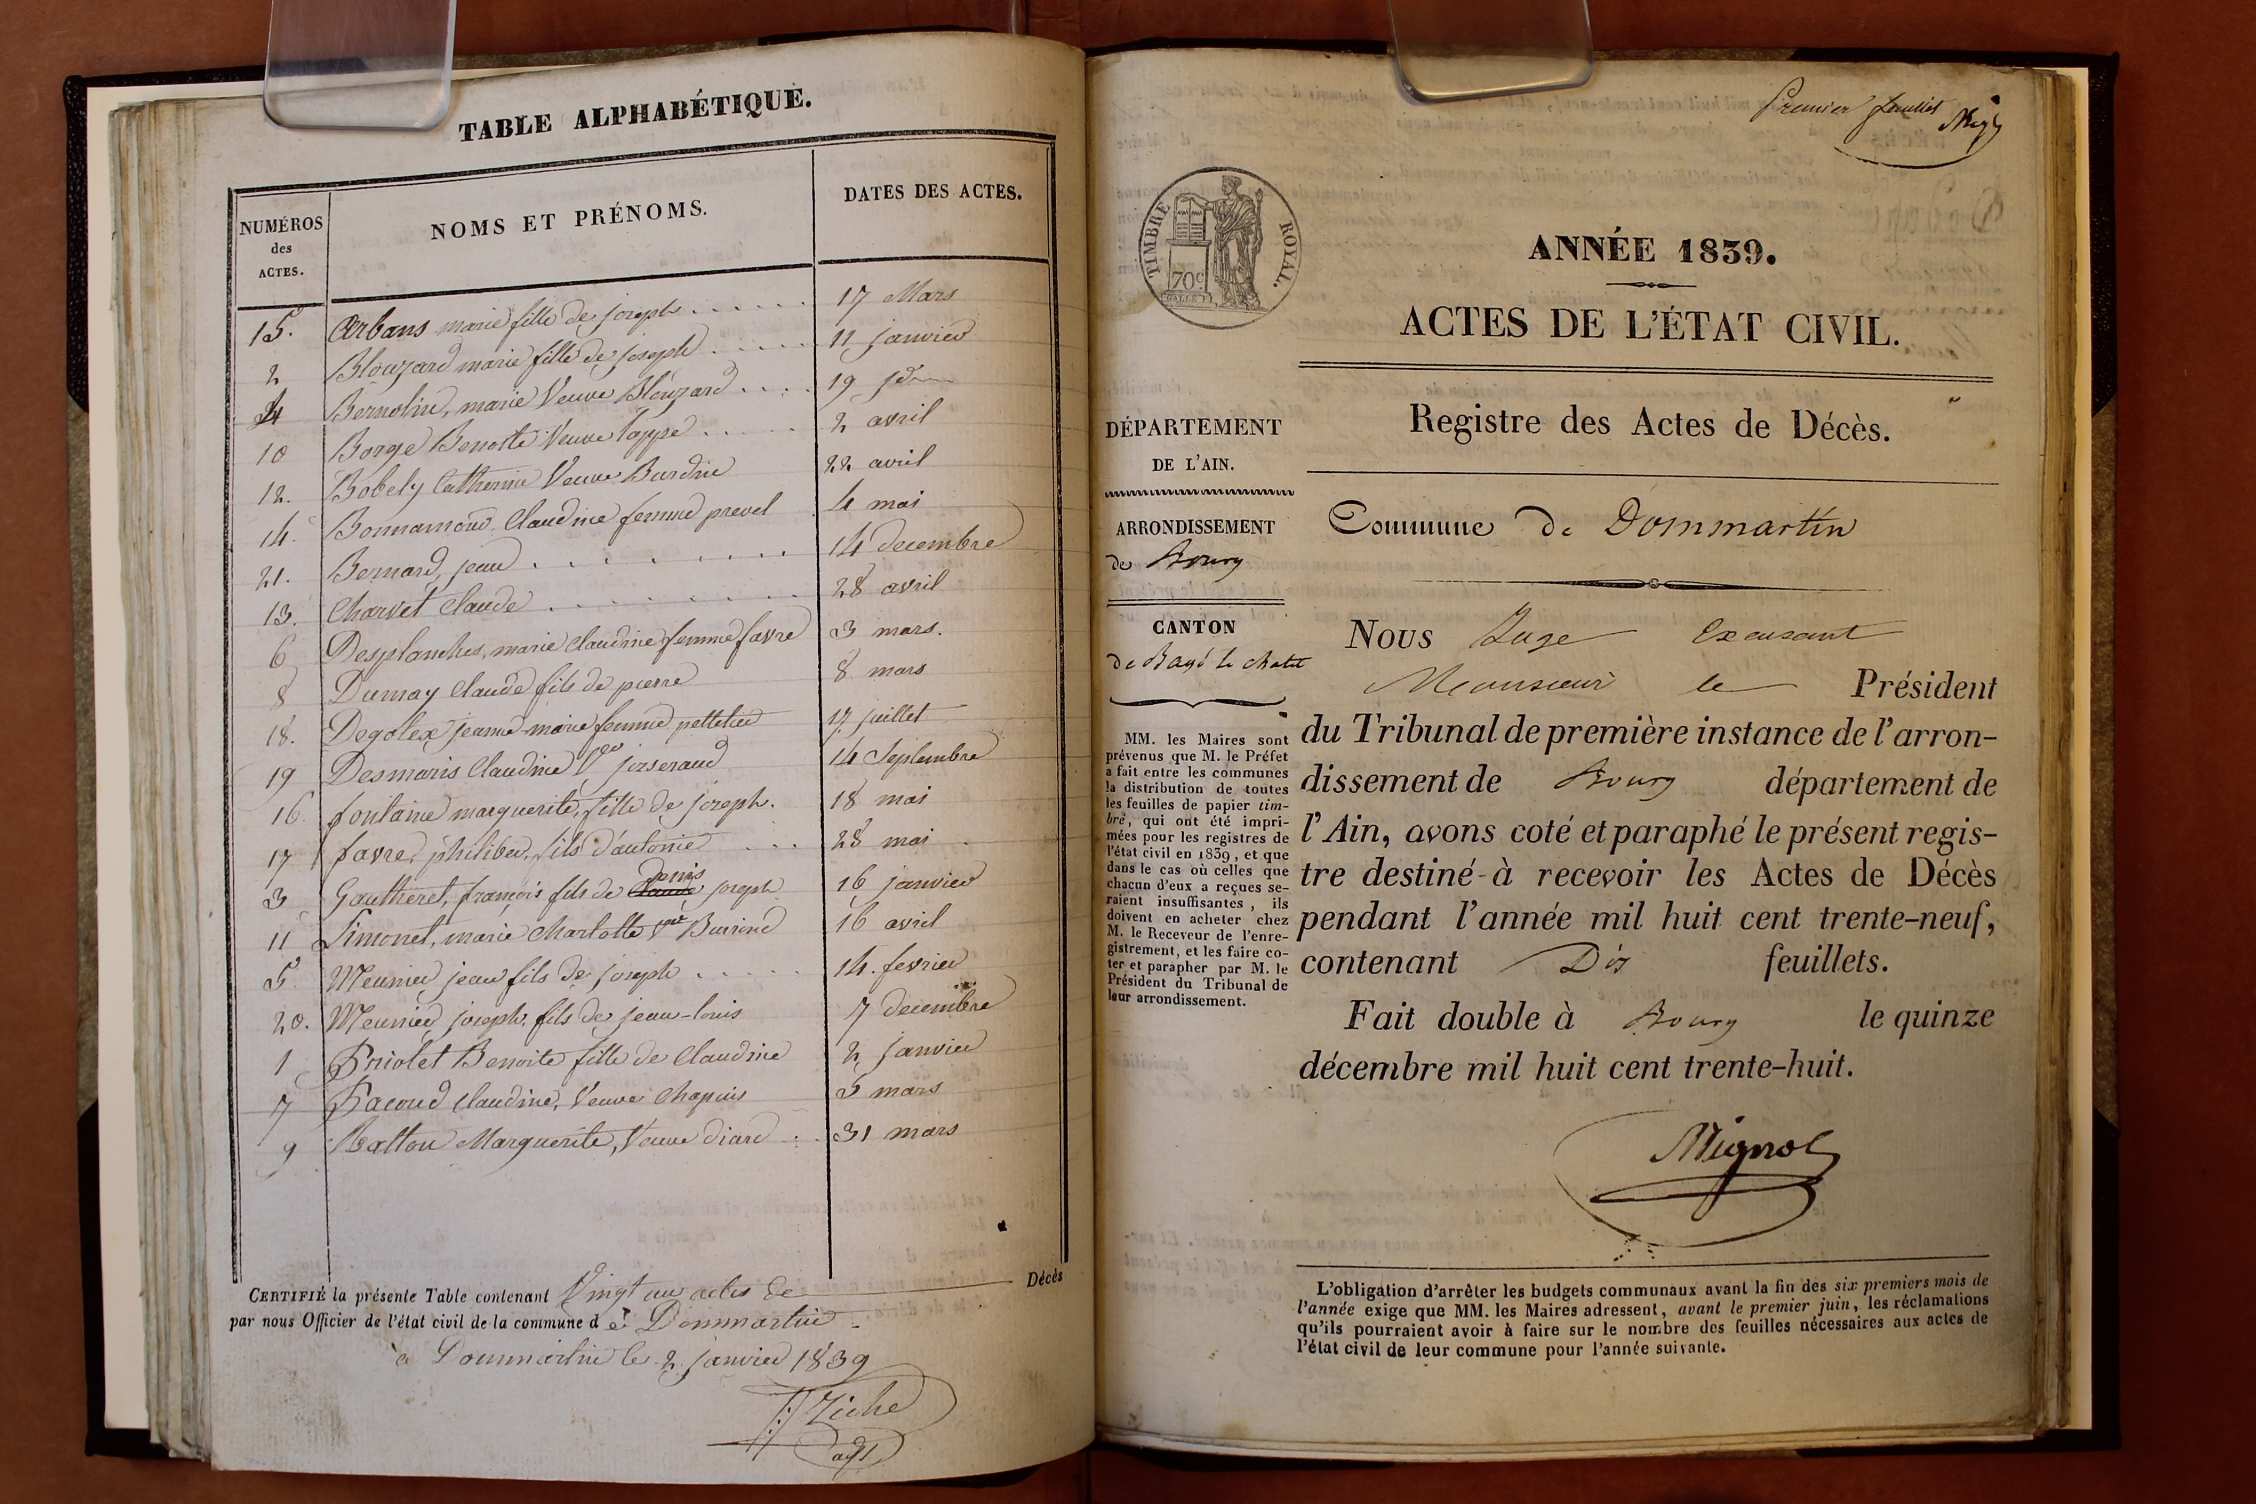 TABLE ALPHABÉTIQUE.
NUMÉROS des ACTES.
NOMS ET PRÉNOMS.
DATES DES ACTES.
15. Arbans marie fille de joseph 17 Mars
2 Blouzard marie fille de joseph 11 janvier
4 Bernolin, marie Veuve Blouzard 19 jd
10 Borge Benoite Veuve 2 avril
12. Bobely Catherine Veuve Burdin 22 avril
14. Bonnamour Claudine femme prevel 4 mai
21. Bernard, jean 14 decembre
13. Charvet Claude 28 avril
6 Desplanches, marie claudine femme favre 3 mars.
8 Dumay Claude fils de pierre 8 mars
18. Degolex jeanne marie femme pelletier 17 juillet
19 Desmaris Claudine Ve josserand 14 Septembre
16. fontaine marguerite, fille de joseph. 18 mai
17 favre, philibert, fils d'antoine 28 mai
3 Gautheret, françois fils de Claude Denis joseph 16 janvier
11 Limonet, marie Charlotte 16 avril
5. Meunier jean fils de joseph 14. fevrier
20. Meunier joseph. fils de jean-louis 7 decembre
1 Priolet Benoite fille de Claudine 2 janvier
7 Pacoud Claudine, Veuve Chapuis 5 mars
9 Ratton Marguerite, Veuve diard 31 mars
CERTIFIÉ la présente Table contenant Vingt un actes de Décès
par nous Officier de l'état civil de la commune de Dommartin
à Dommartin le 2 janvier 1839
adjt
Premier feuillet
TIMBRE ROYAL.
70c
ANNÉE 1839.
ACTES DE L'ÉTAT CIVIL.
Registre des Actes de Décès.
DÉPARTEMENT
DE L'AIN.
ARRONDISSEMENT
de Bourg
CANTON
de Bagé le chatel
MM. les Maires sont
prévenus que M. le Préfet
a fait entre les communes
la distribution de toutes
les feuilles de papier tim-
bré, qui ont été impri-
mées pour les registres de
l'état civil en 1839, et que
dans le cas où celles que
chacun d'eux a reçues se-
raient insuffisantes, ils
doivent en acheter chez
M. le Receveur de l'enre-
gistrement, et les faire co-
ter et parapher par M. le
Président du Tribunal de
leur arrondissement.
Commune de Dommartin
Nous Juge Excusant
Monsieur le Président
du Tribunal de première instance de l'arron-
dissement de Bourg département de
l'Ain, avons coté et paraphé le présent regis-
tre destiné à recevoir les Actes de Décès
pendant l'année mil huit cent trente-neuf,
contenant Dix feuillets.
Fait double à Bourg le quinze
décembre mil huit cent trente-huit.
Mignot
L'obligation d'arrêter les budgets communaux avant la fin des six premiers mois de
l'année exige que MM. les Maires adressent, avant le premier juin, les réclamations
qu'ils pourraient avoir à faire sur le nombre des feuilles nécessaires aux actes de
l'état civil de leur commune pour l'année suivante.